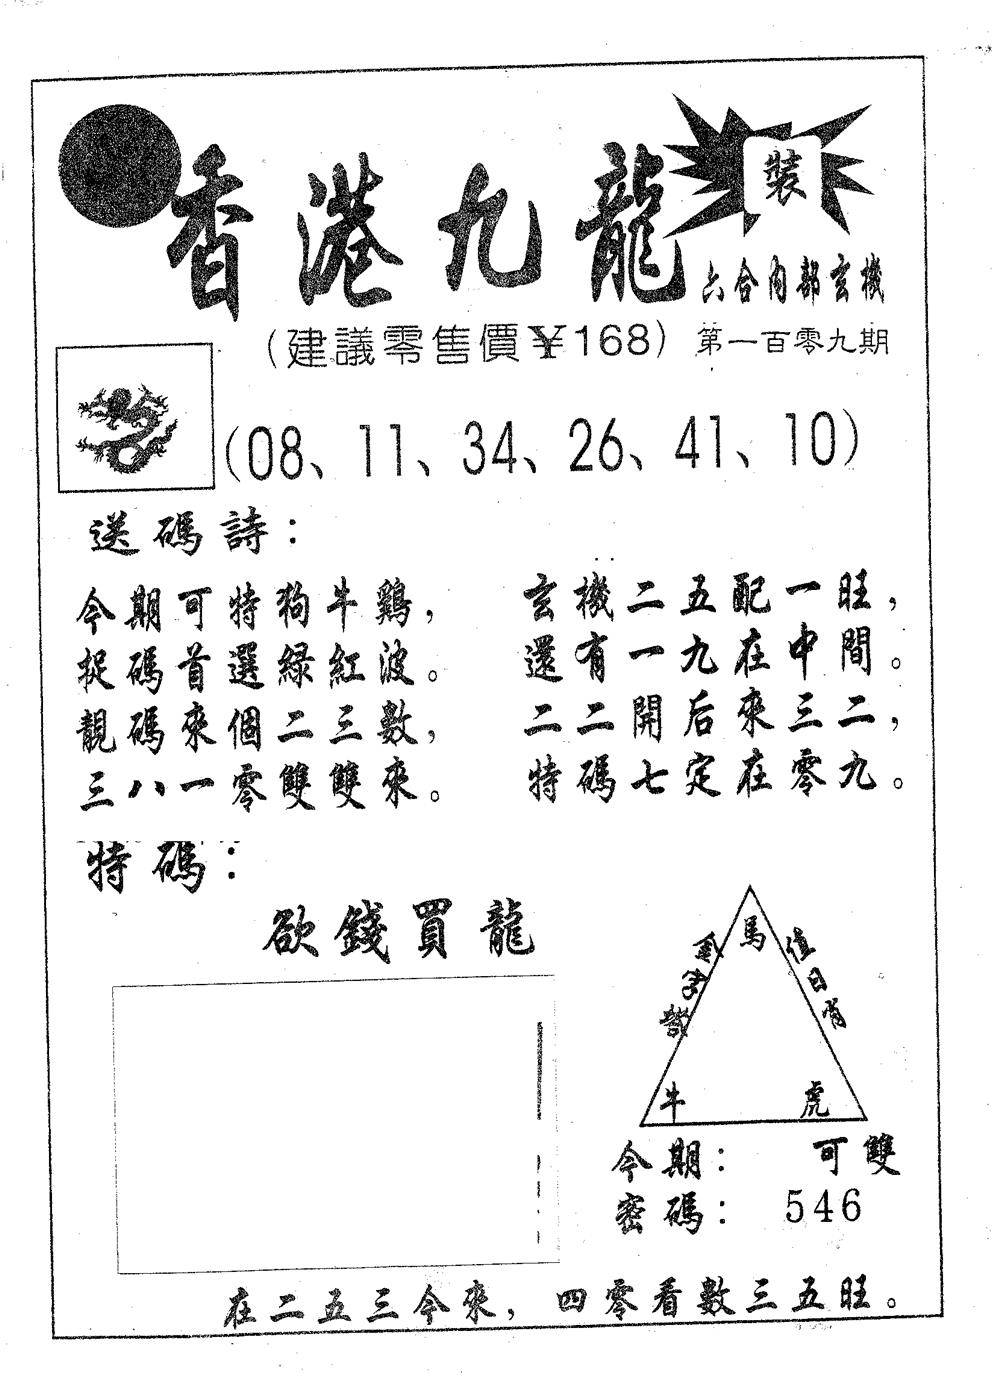 香港九龍
裝
六合內部玄機
(建議零售價¥168) 第一百零九期
(08、11、34、26、41、10)
送碼詩：
今期可特狗牛鷄，
捉碼首選緑紅波。
靚碼來個二三數，
三八一零雙雙來。
玄機二五配一旺，
還有一九在中間。
二二開后來三二，
特碼七定在零九。
特碼：
欲錢買龍
金字
馬
值日肖
牛
虎
今期： 可雙
密碼： 546
在二五三今來，四零看數三五旺。